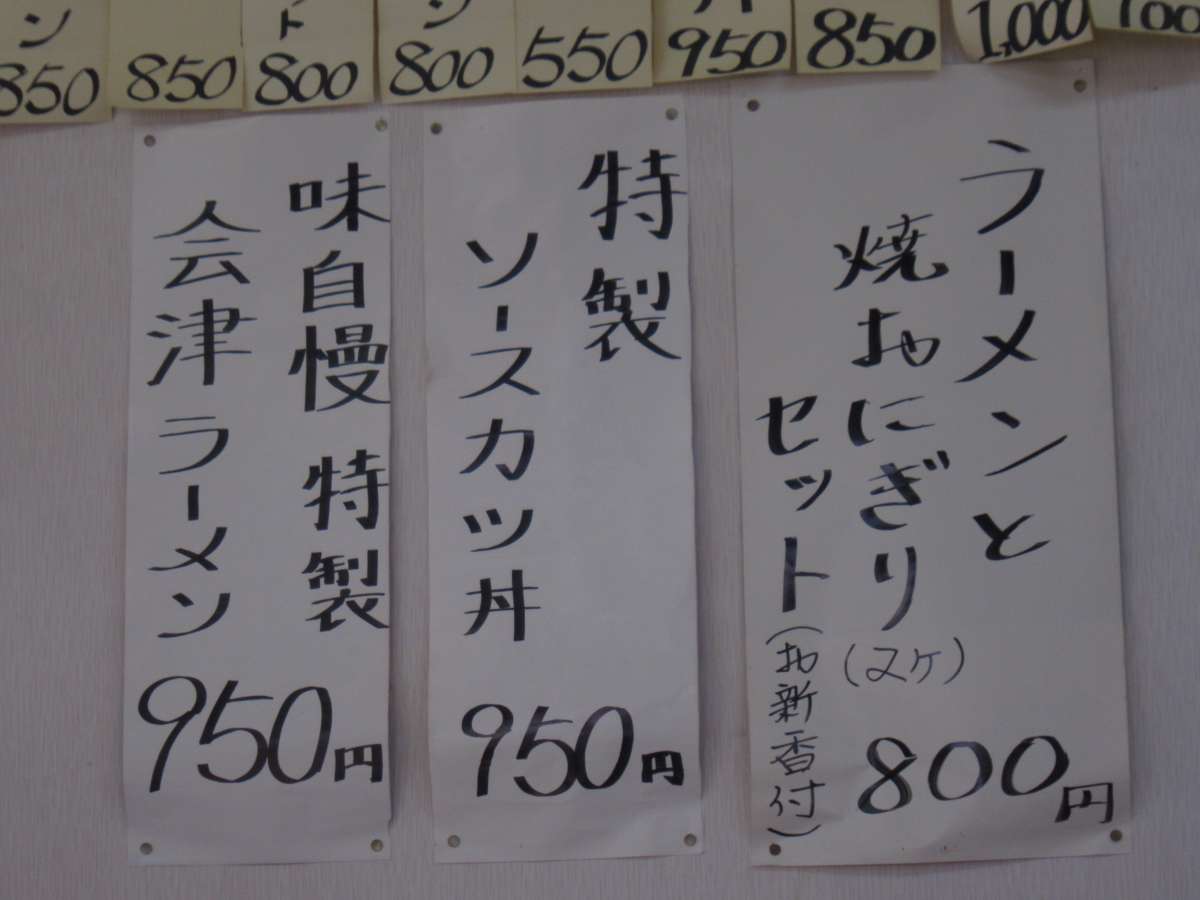 ン
850
850
ト
800
ン
800
550
950
850
1,000
ラーメンと
焼おにぎり(2ケ)
セット(お新香付)
800円
特製
ソースカツ丼
950円
味自慢 特製
会津ラーメン
950円